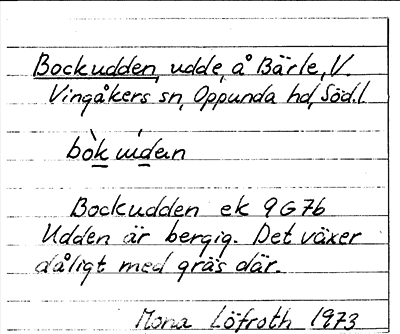 Bockudden, udde, å Bärle, V.
Vingåkers sn, Oppunda hd, Söd.l.
Bockudden ek 9G7b
Udden är bergig. Det växer
dåligt med gräs där.
Mona Löfroth 1973